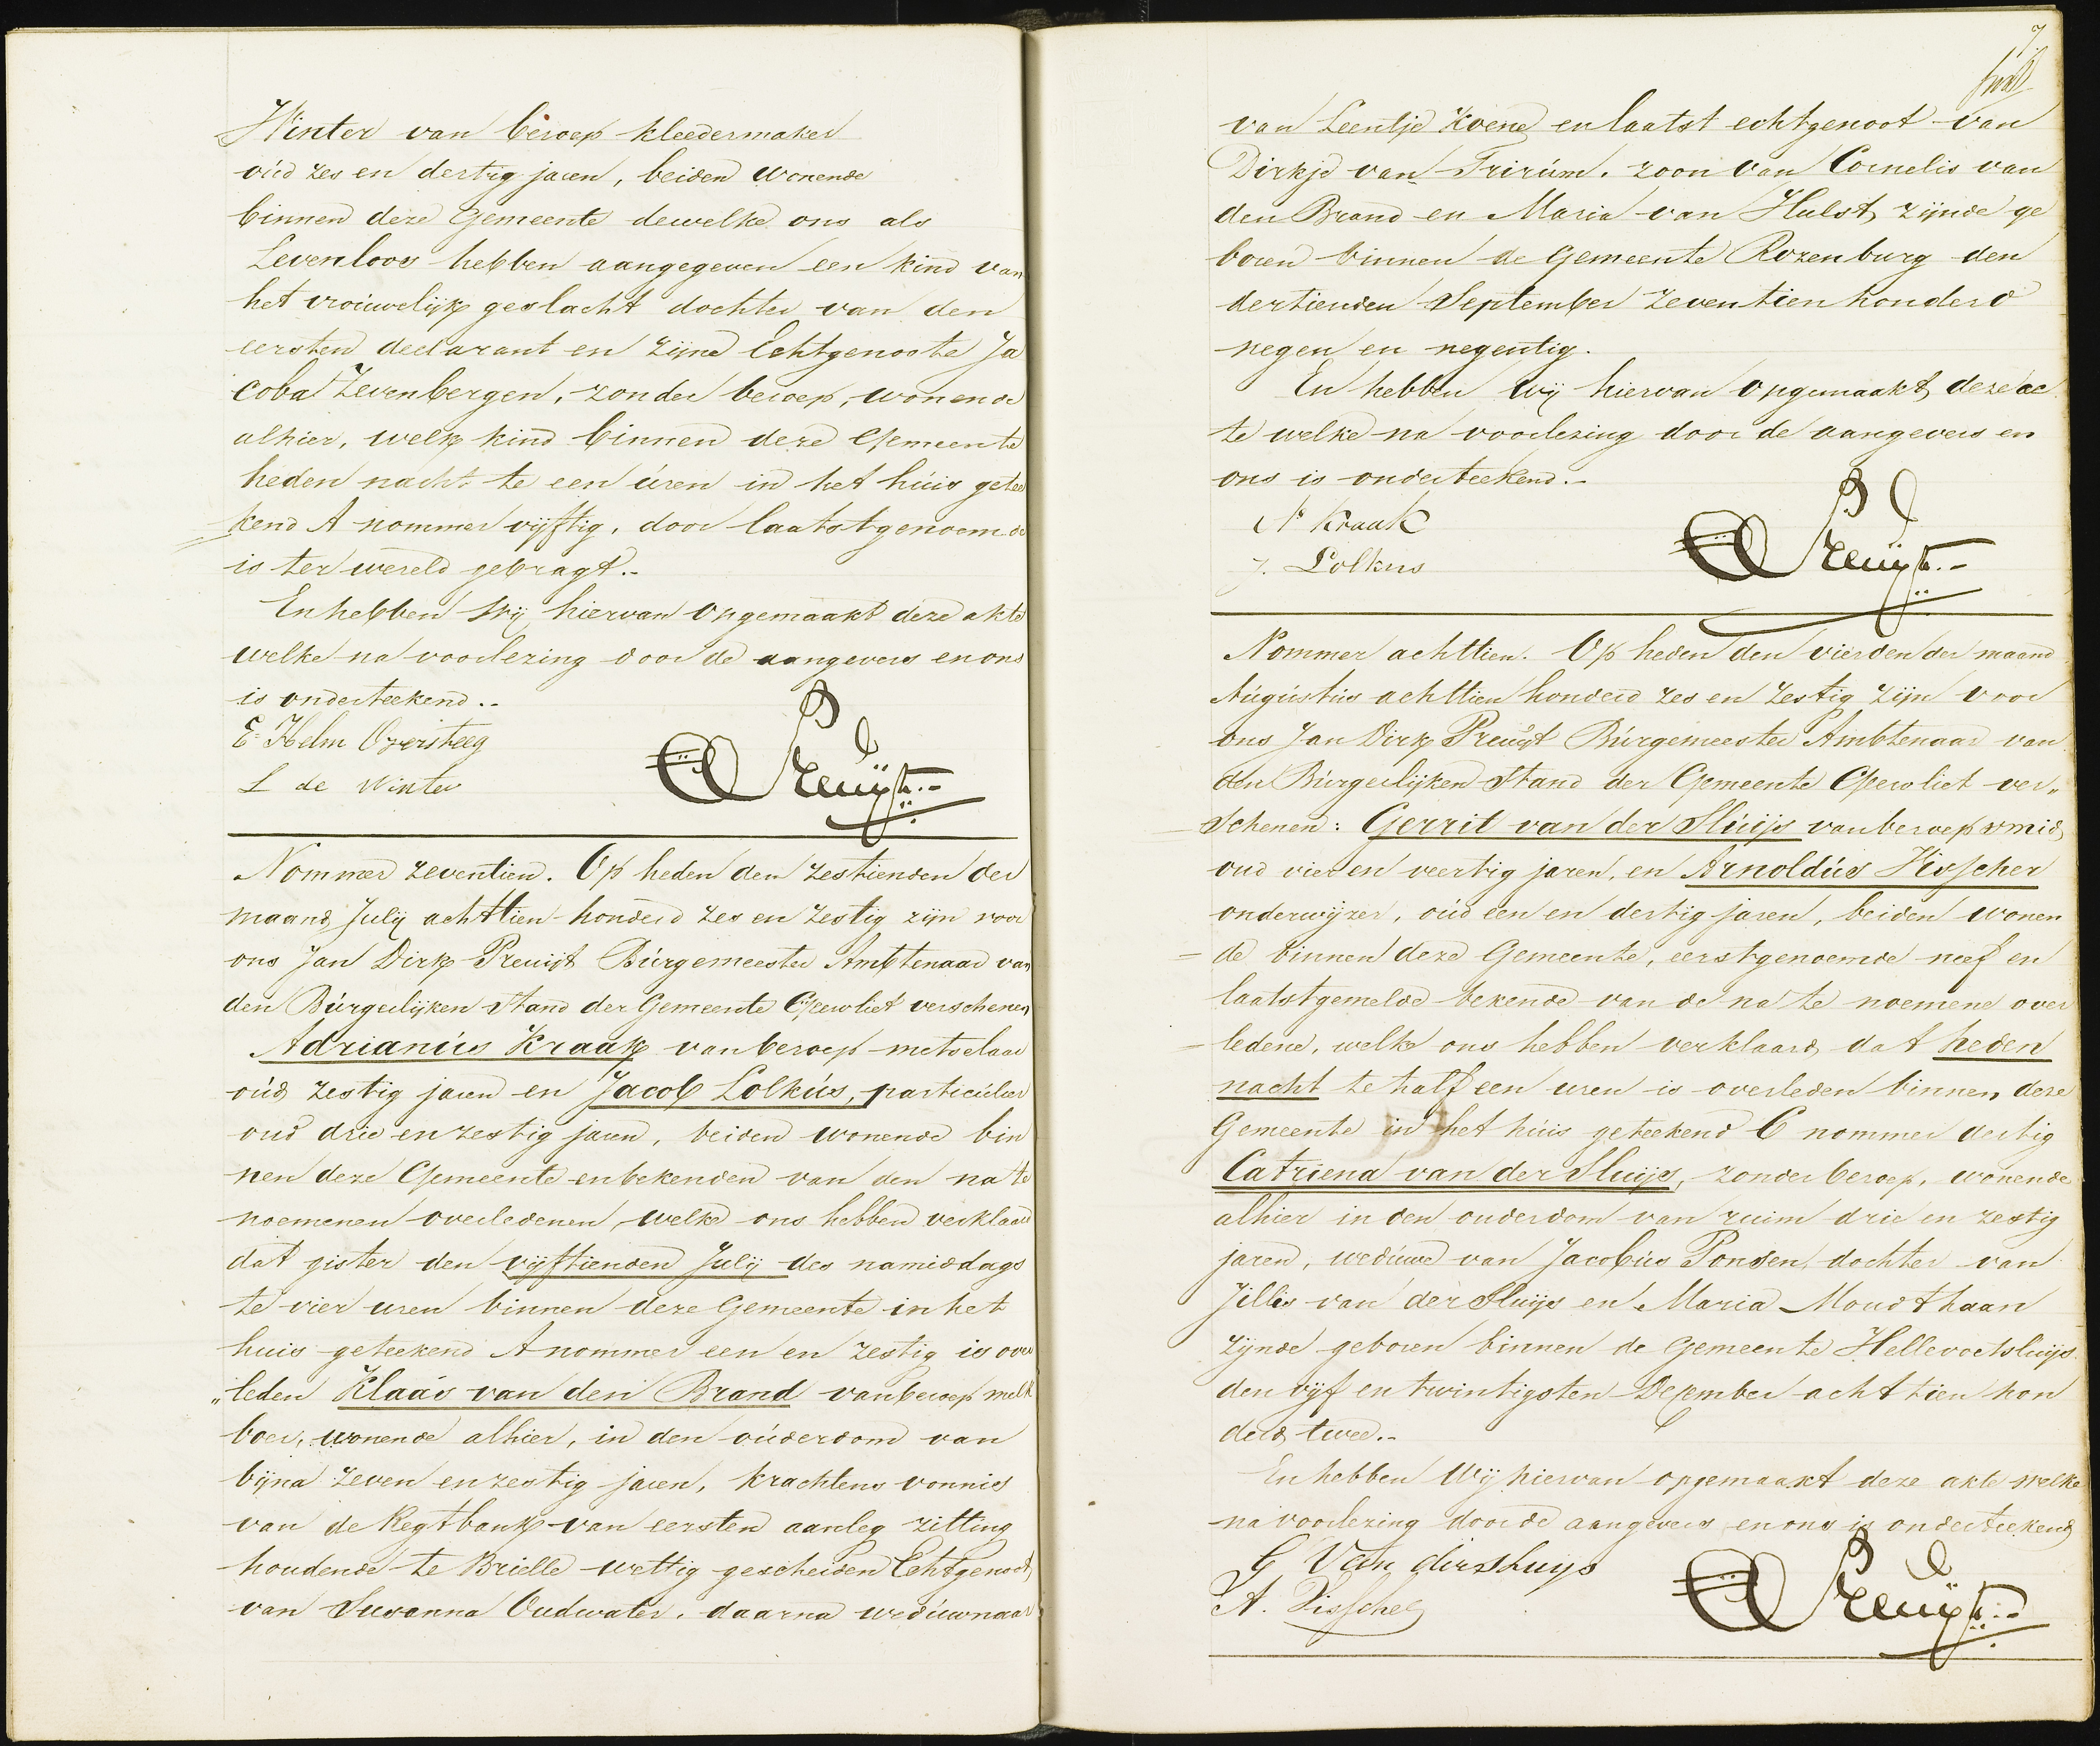 Winter van beroep kleedermaker
oud zes en dertig jaren, beiden wonende
binnen deze Gemeente dewelke ons als
Levenloos hebben aangegeven een kind van
het vrouwelijk geslacht dochter van den
eersten declarant en zijne Echtgenoote Ja
coba Zevenbergen, zonder beroep, wonende
alhier, welk kind binnen deze Gemeente
heden nacht te een uren in het huis getee
kend A nommer vijftig, door laatstgenoemde
is ter wereld gebragt.-
En hebben Wij hiervan opgemaakt deze akte
welke na voorlezing door de aangevers en ons
is onderteekend.-
E. Helm Oversteeg
L de Winter
Preuijt.-
Nommer zeventien. Op heden den zestienden der
maand Julij achttien honderd zes en zestig zijn voor
ons Jan Dirk Preuijt Burgemeester Ambtenaar van
den Burgerlijken Stand der Gemeente Geervliet verschenen
Adrianus Kraak van beroep metselaar
oud zestig jaren en Jacob Lolkus, particulier
oud drie en zestig jaren, beiden wonende bin
nen deze Gemeente en bekenden van den na te
noemenen overledenen, welke ons hebben verklaard
dat gister den vijftienden Julij des namiddags
te vier uren binnen deze Gemeente in het
huis geteekend A nommer een en zestig is over
„leden Klaas van den Brand van beroep melk
boer, wonende alhier, in den ouderdom van
bijna zeven en zestig jaren, krachtens vonnis
van de Regtbank van eersten aanleg zitting
houdende te Brielle wettig gescheiden Echtgenoot
van Susanna Oudwater, daarna weduwnaar
7
van Leentje Koene en laatst echtgenoot van
Dirkje van Trirum. zoon van Cornelis van
den Brand en Maria van Hulst, zijnde ge
boren binnen de Gemeente Rozenburg den
dertienden September zeventien honderd
negen en negentig.
En hebben Wij hiervan opgemaakt deze ac
te welke na voorlezing door de aangevers en
ons is onderteekend.-
A Kraak
J. Lolkus
Preuijt.-
Nommer achttien. Op heden den vierden der maand
Augustus achttien honderd zes en zestig zijn voor
ons Jan Dirk Preuijt Burgemeester Ambtenaar van
den Burgerlijken Stand der Gemeente Geervliet ver„
schenen: Gerrit van der Sluijs van beroep smid,
oud vier en veertig jaren, en Arnoldus Visscher
onderwijzer, oud een en dertig jaren, beiden wonen
de binnen deze Gemeente, eerstgenoemde neef en
laatstgemelde bekende van de na te noemene over
ledene, welke ons hebben verklaard, dat heden
nacht te half een uren is overleden binnen deze
Gemeente in het huis geteekend C nommer dertig
Catriena van der Sluijs, zonder beroep, wonende
alhier in den ouderdom van ruim drie en zestig
jaren, weduwe van Jacobus Ponsen, dochter van
Jillis van der Sluijs en Maria Moudthaan
zijnde geboren binnen de Gemeente Hellevoetsluijs
den vijf en twintigsten December achttien hon
derd twee.-
En hebben Wij hiervan opgemaakt deze akte welke
na voorlezing door de aangevers en ons is onderteekend
G Van der Sluijs
A. Visscher
Preuijt.-